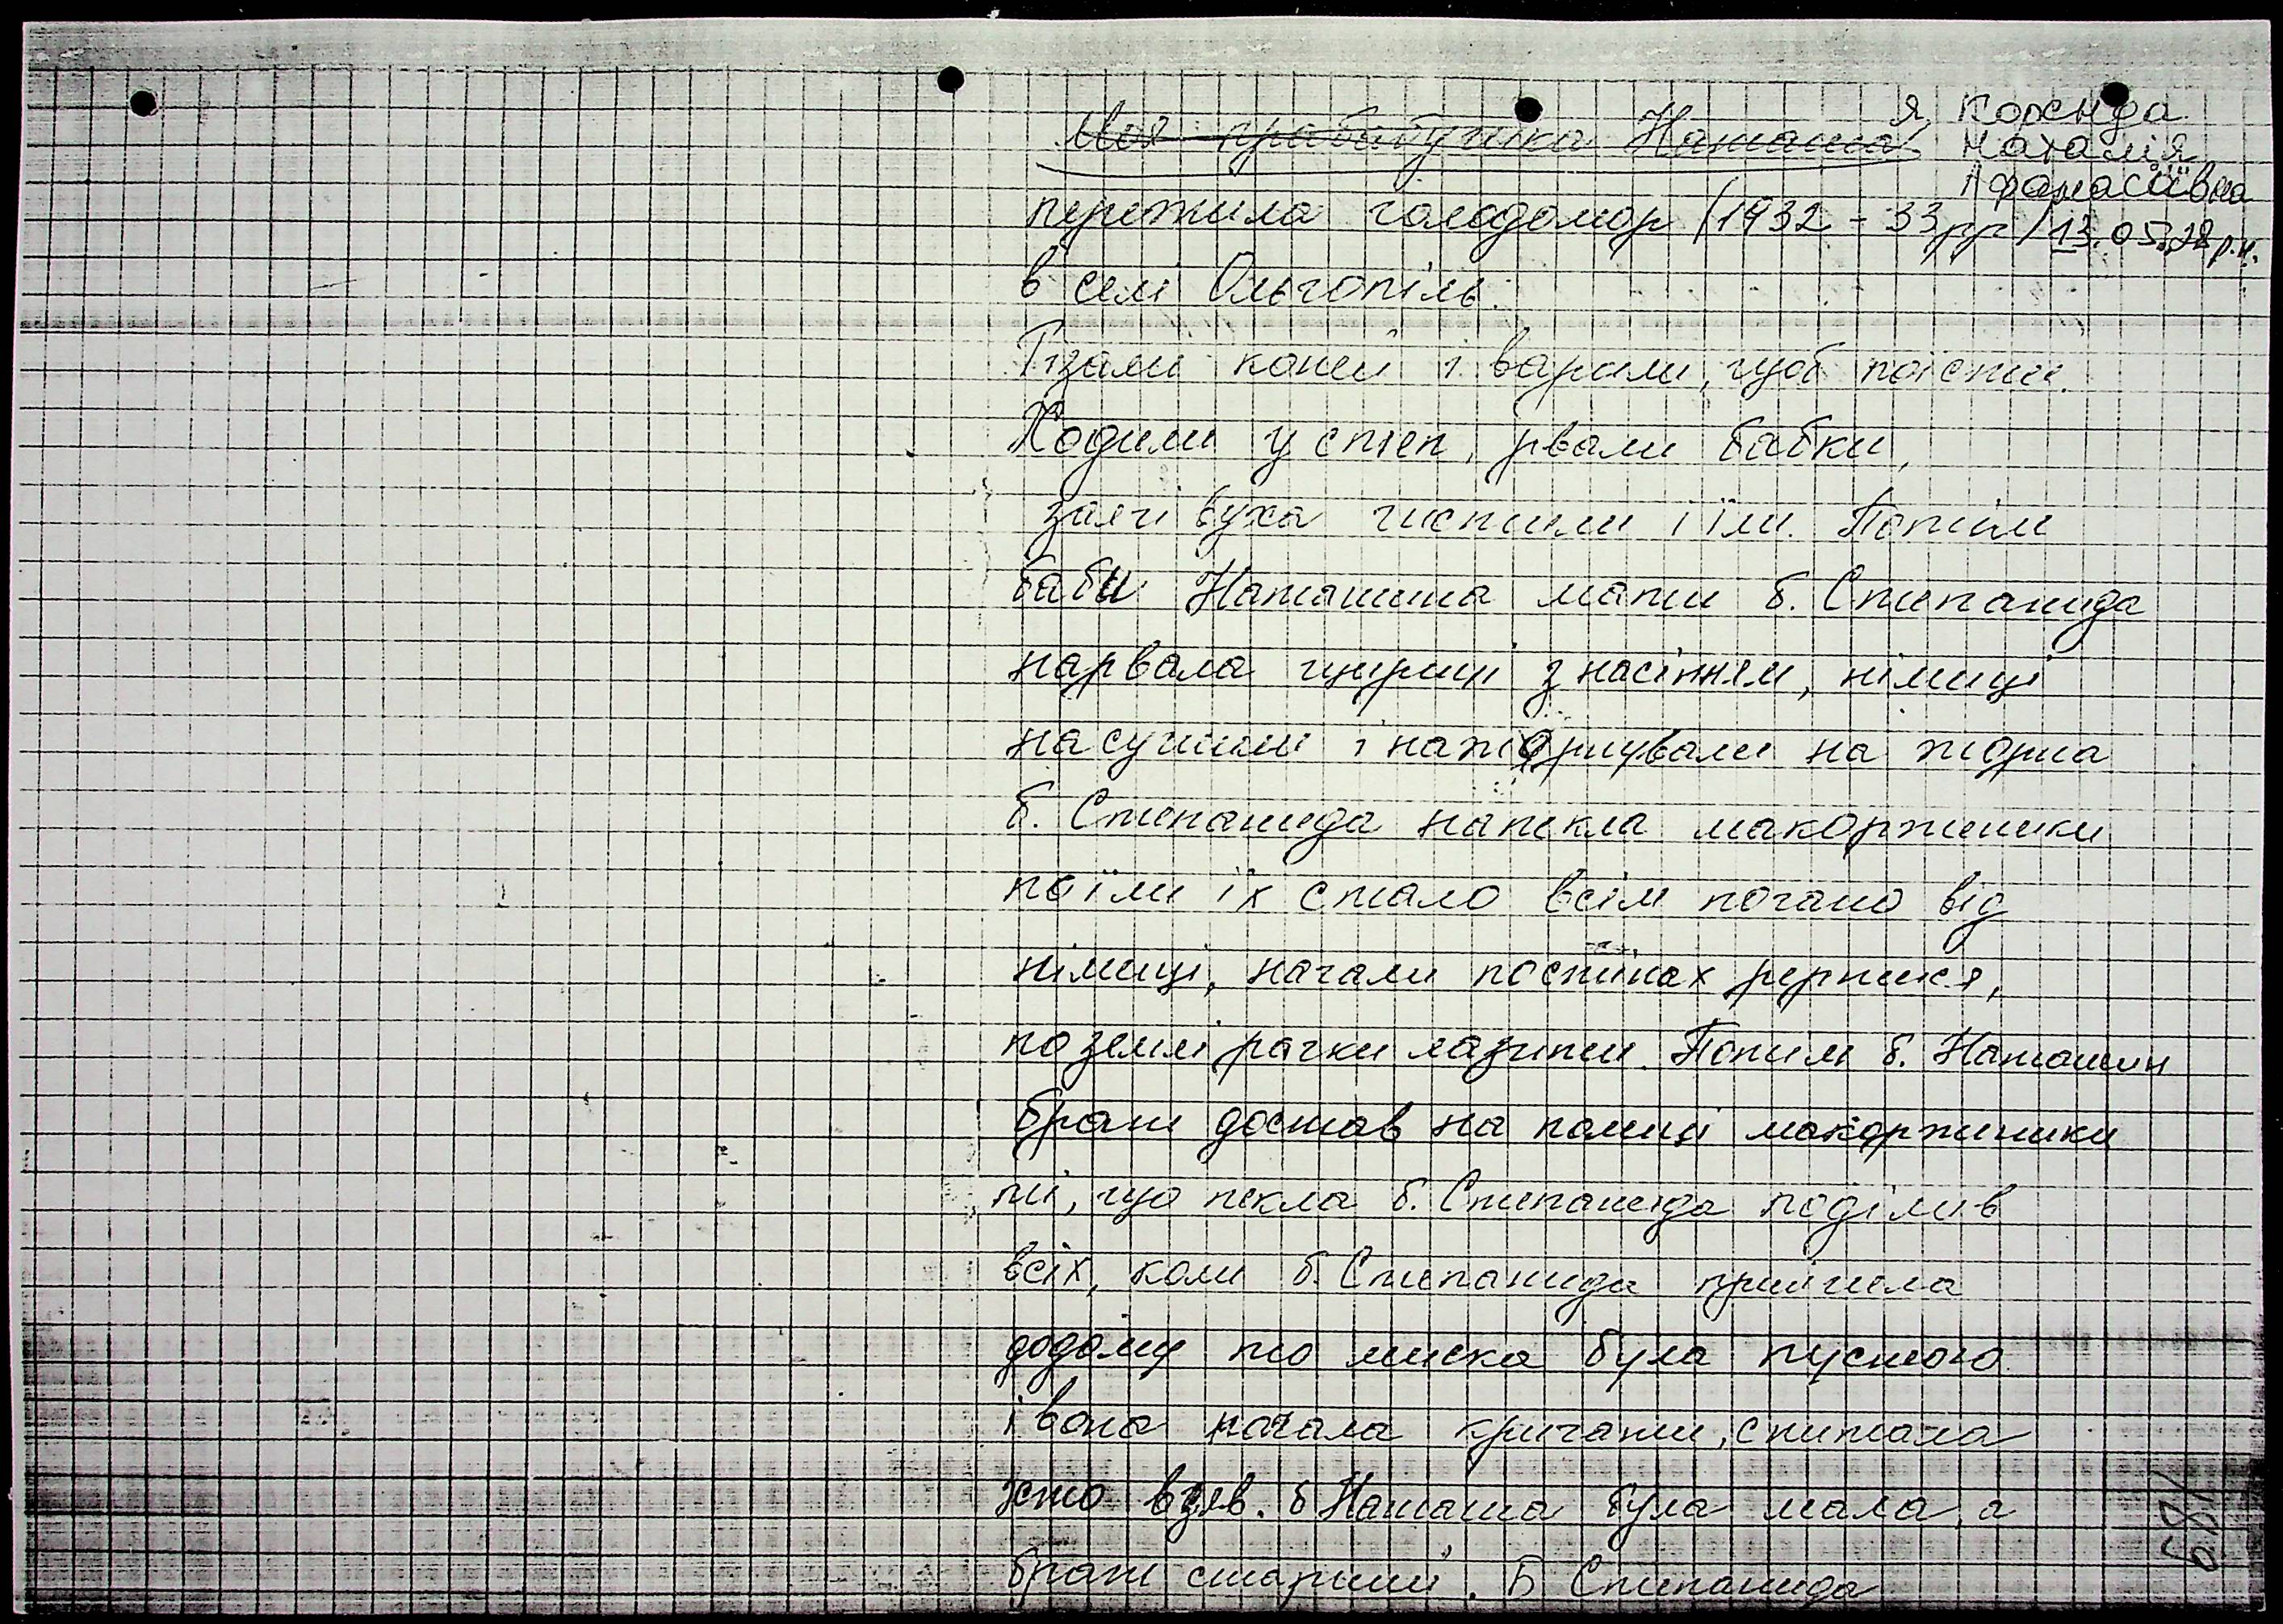 Моя прабабушка Наташа
я, Кожнда
Наталія
Афанасіївна
пережила голодомор /1932 - 33рр/ 13.05.28 р.н.
в селі Ольгопіль.
Різали коней і варили, щоб поїсти.
Ходили у степ, рвали бабки,
заячі вуха чистили і їли. Потім
баби Наташина мати б. Степанида
нарвала щириці з насінням, німиці
насушили і нажорнували на жорна
б. Степанида напекла макорженики
поїли їх стало всім погано від
німиці, начали постінах дертися,
по землі рачки лазити. Потим б. Наташин
брат достав на полиці макорженики
ті, що пекла б. Степанида поділив
всіх, коли б. Степанида прийшла
додому то миска була пустою
і вона начала кричати, спитала
хто взяв. б Наташа була мала, а
брат старший. Б Степанида
159